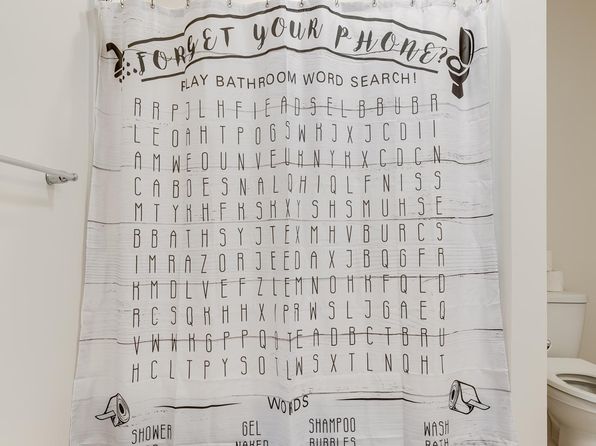 FORGET YOUR PHONE?
PLAY BATHROOM WORD SEARCH!
R R P J L H F I E A D S E L B B U B R
L E O A H T P O G S W K J X J C D I I
A M W E O U N V E U K N Y K X C D C N
C A B O E S N A L Q H I Q L F N I S S
M T Y K H F K S K X Y S H S M U H S E
B B A T H S Y J T E X M H V B U R C S
I M R A Z O R J E E D A X J B Q G F R
K M D L V E F Z L E M N O H K F Q L D
R C S Q K H H X I P R W S L J G A E Q
V W W K G P P Q O Y E A D B C T B R U
H C L T P Y S O T L W S X T L N Q H T
WORDS
SHOWER GEL SHAMPOO WASH
NAKED BUBBLES BATH